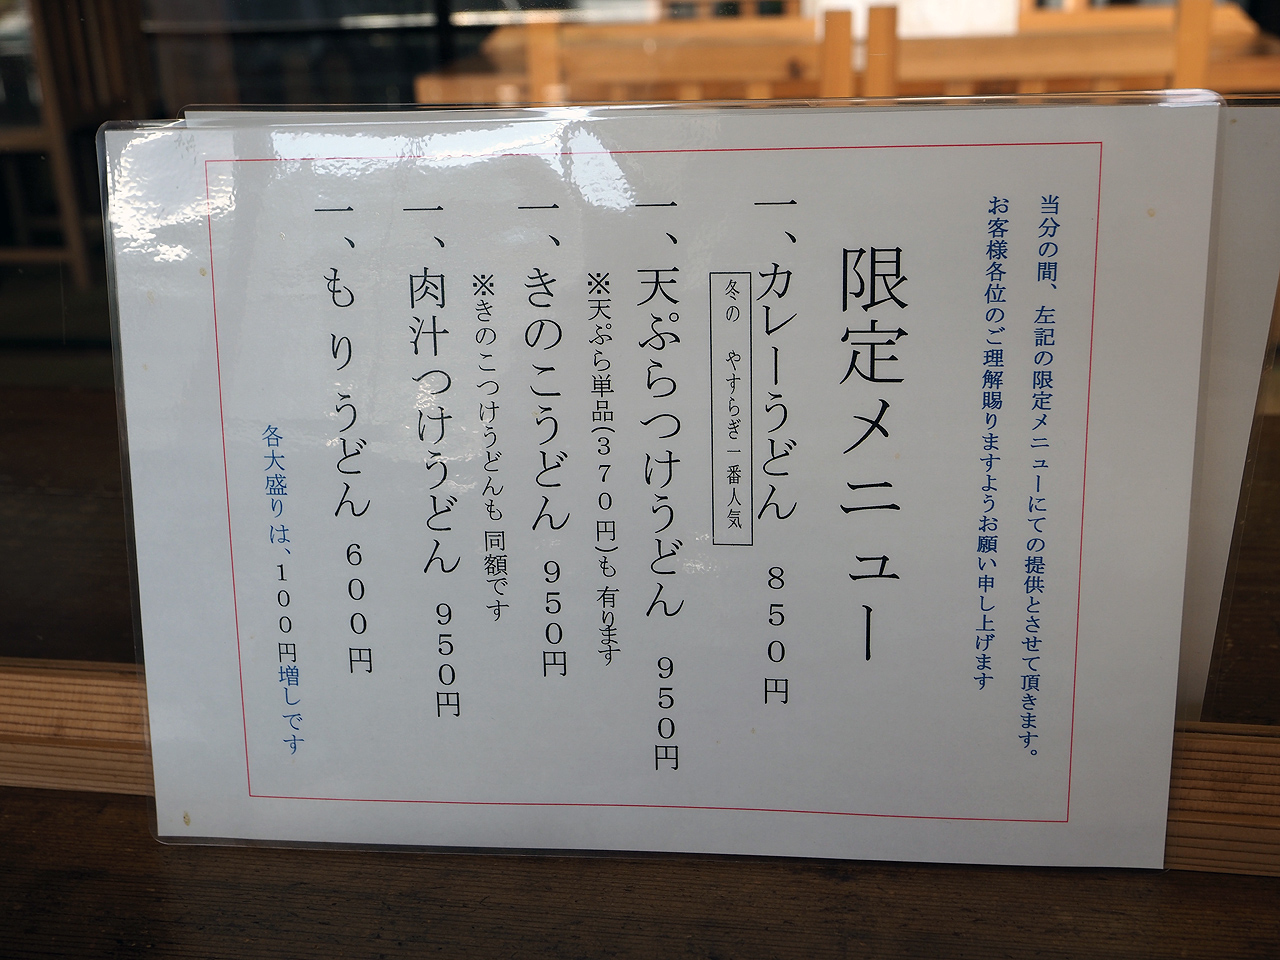 当分の間、左記の限定メニューにての提供とさせて頂きます。
お客様各位のご理解賜りますようお願い申し上げます
限定メニュー
一、カレーうどん 850円
冬の やすらぎ一番人気
一、天ぷらつけうどん 950円
※天ぷら単品(370円)も 有ります
一、きのこうどん 950円
※きのこつけうどんも 同額です
一、肉汁つけうどん 950円
一、もりうどん 600円
各大盛りは、100円増しです